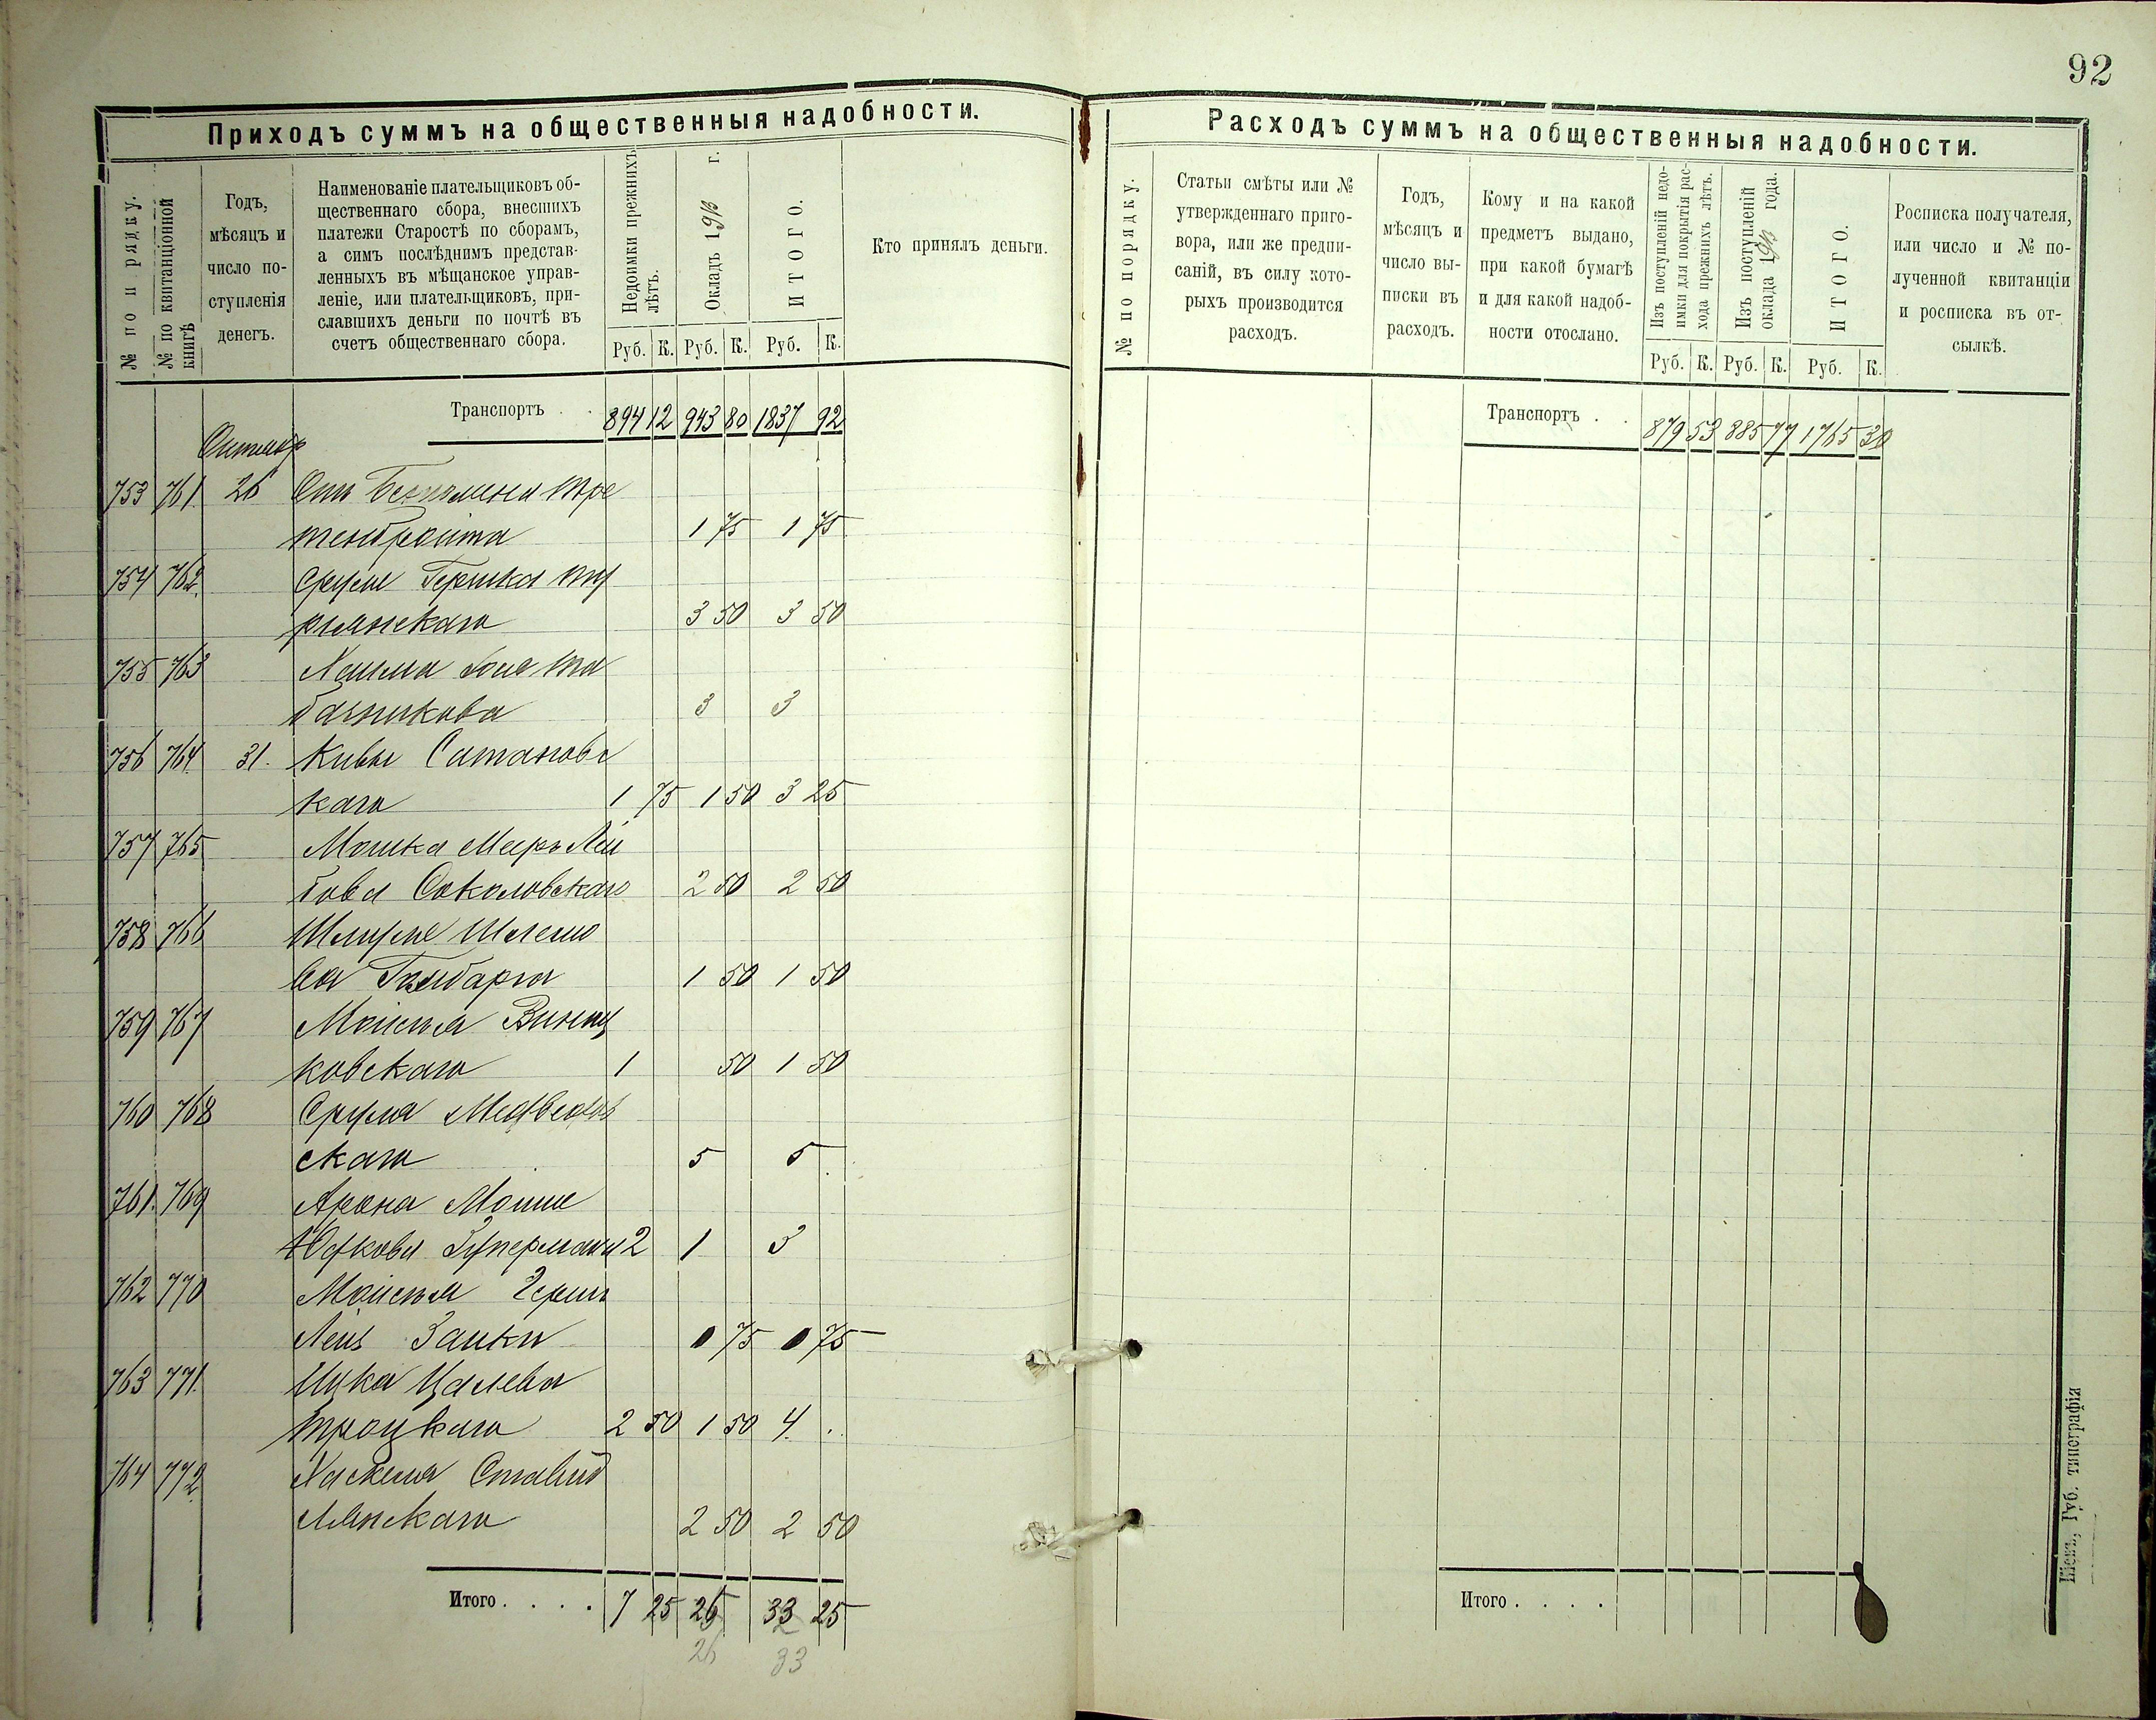 92
Приходъ суммъ на общественныя надобности.
№ по порядку.
№ по квитанціонной книгѣ
Годъ,
мѣсяцъ и
число по-
ступленія
денегъ.
Наименованіе плательщиковъ об-
щественнаго сбора, внесшихъ
платежи Старостѣ по сборамъ,
а симъ послѣднимъ представ-
ленныхъ въ мѣщанское управ-
леніе, или плательщиковъ, при-
славшихъ деньги по почтѣ въ
счетъ общественнаго сбора.
Недоимки прежнихъ
лѣтъ.
Окладъ 1910 г.
ИТОГО.
Кто принялъ деньги.
Руб. К. Руб. К. Руб. К.
Транспортъ . . 894 12 943 80 1837 92
Октябр
753 761. 26 Отъ
1 75 1 75
754 762. Сруля Гершка Ту
рянскаго 3 50 3 50
755 763 Хаима Та
бачникова 3 3
756 764. 31. Кивы Сатановс
каго 1 75 1 50 3 25
757 765 Мошка Меера Лей
бова Соколовскаго 2 50 2 50
758 766 Шмуля Шлемо
ва 1 50 1 50
759 767 Мойсея
ковскаго 1 50 1 50
760 768 Сруля Медведов
скаго 5 5
761. 769 Арона Мошке
Юдкова Зупермана 2 1 3
762 770 Мойсея Герш
Лейб Заики 0 75 0 75
763 771. Ицка Цалева
Троцкаго 2 50 1 50 4. .
764 772. Хаскеля Ставид
лянскаго 2 50 2 50
Итого . . . . 7 25 26 33 25
26 33
Расходъ суммъ на общественныя надобности.
№ по порядку.
Статьи смѣты или №
утвержденнаго приго-
вора, или же предпи-
саній, въ силу кото-
рыхъ производится
расходъ.
Годъ,
мѣсяцъ и
число вы-
писки въ
расходъ.
Кому и на какой
предметъ выдано,
при какой бумагѣ
и для какой надоб-
ности отослано.
Изъ поступленій недо-
имки для покрытія рас-
хода прежнихъ лѣтъ.
Изъ поступленій
оклада 1910 года.
ИТОГО.
Росписка получателя,
или число и № по-
лученной квитанціи
и росписка въ от-
сылкѣ.
Руб. К. Руб. К. Руб. К.
Транспортъ . . 879 53 885 77 1765 30
Итого . . . .
Губ. типографія